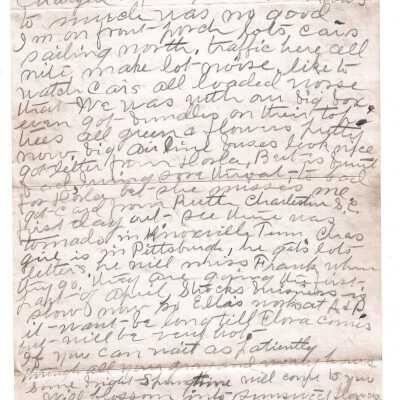 to much was no good
I'm on front porch lots, cars
sailing north, traffic here all
nite, make lot-noise, like to
watch cars all loaded worse
that We was with our big box
even got bundles on their top
trees all green & flowers pretty
now, big Air line buses look nice
got letter from Flora, Bert is
sore throat- to bad
for but she misses me
got card from Ruth Charleston S.C.
see there was
tornado in Knoxville Tenn Chas
is in Pittsburgh, he gets lots
letters, he will miss Frank when
they go, they are going
part of April Stocks
slow now, so Ella's works at A&P
it-want-be long till Flora comes
will be very hot
If you can wait as patiently
through all
some night Springtime will come to you
will blossom into sweetest flowers